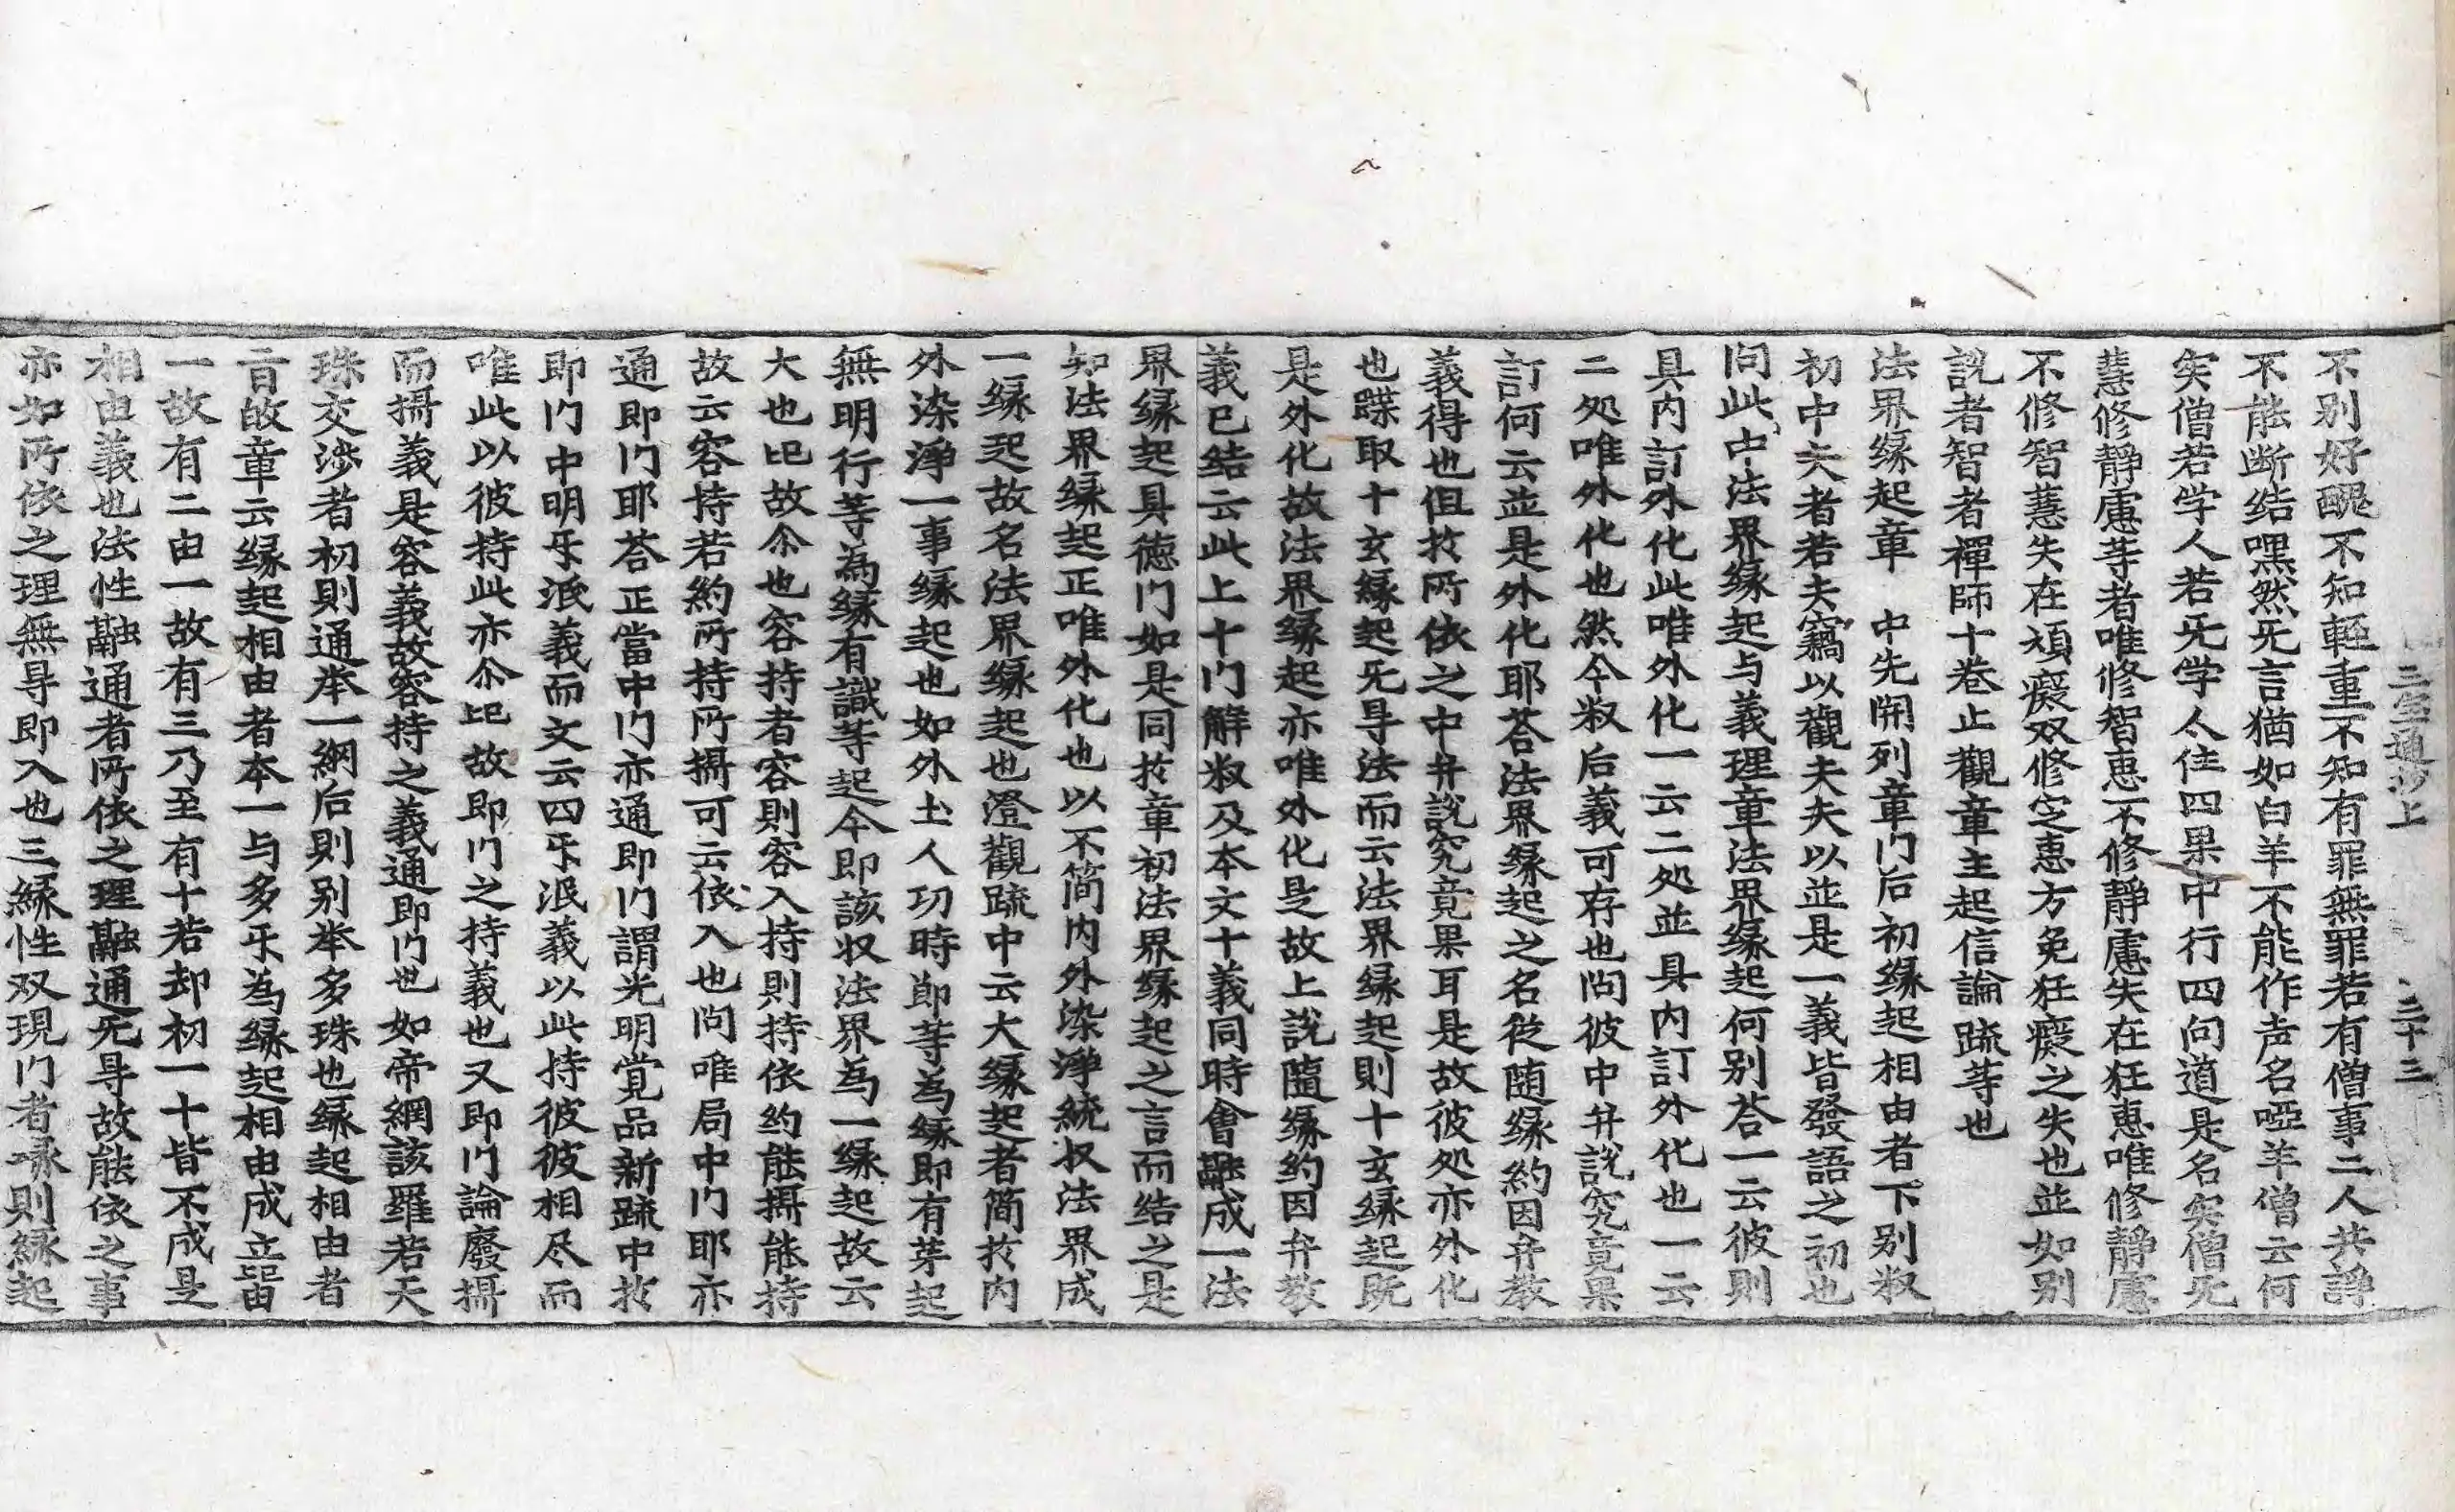 三宝通抄上 三十三
不別好醜不知輕重不知有罪無罪若有僧事二人共諍
不能断结嘿然旡言猶如白羊不能作声名啞羊僧云何
实僧若学人若旡学人住四果中行四向道是名实僧旡
慧修靜慮䒭者唯修智惠不修靜慮失在狂惠唯修靜慮
不修智慧失在頑癡双修㝎惠方免狂癡之失也並如别
說者智者禪師十卷止觀章主起信論䟽等也
法界縁起章 中先開列章门后初縁起相由者下别㕚
初中夫者若夫竊以觀夫夫以並是一義皆發語之初也
问此中法界縁起与義理章法界縁起何别荅一云彼則
具内訂外化此唯外化一云二処並具内訂外化也一云
二処唯外化也然今㕚后義可存也问彼中弁說究竟果
訂何云並是外化耶荅法界縁起之名從随縁約因弁教
義得也但扵所依之中弁說究竟果耳是故彼処亦外化
也蹀取十玄縁起旡导法而云法界縁起則十玄縁起既
是外化故法界縁起亦唯外化是故上說隨縁约因弁教
義已结云此上十门解㕚及本文十義同時會融成一法
界縁起具德门如是同扵章初法界縁起之言而结之是
知法界縁起正唯外化也以不简内外染淨統収法界成
一縁起故名法界縁起也澄觀䟽中云大縁起者简扵内
外染淨一事縁起也如外土人功時節等為縁即有芽起
無明行等為縁有識等起今即該収法界為一縁起故云
大也比故尒也容持者容則容入持則持依约能攝能持
故云容持若約所持所攝可云依入也问唯局中门耶亦
通即门耶荅正當中门亦通即门謂光明覚品新䟽中扵
即门中明㸦泯義而文云四㸦泯義以此持彼彼相尽而
唯此以彼持此亦尒比故即门之持義也又即门論廢攝
而攝義是容義故容持之義通即门也如帝網該羅若天
珠交渉者初則通举一網后則别举多珠也縁起相由者
言故章云縁起相由者本一与多㸦為縁起相由成立皆
一故有二由一故有三乃至有十若却初一十皆不成是
相由義也法性融通者所依之理融通旡导故能依之事
亦如所依之理無导即入也三縁性双現门者縁則縁起